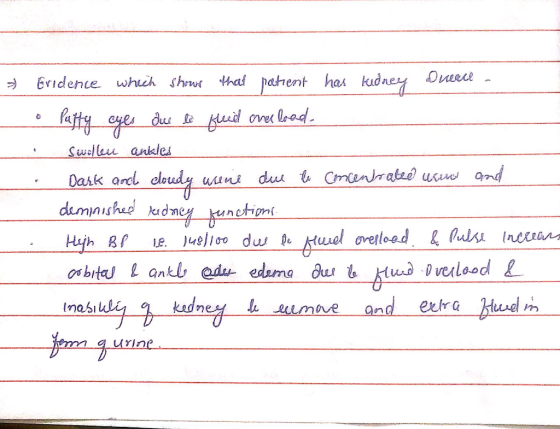 ⇒ Evidence which shows that patient has kidney Disease -
• Puffy eyes due to fluid overload.
• Swollen ankles
• Dark and cloudy urine due to Concentrated urine and
deminished kidney functions.
• High BP i.e. 148/100 due to fluid overload. & Pulse Increase
orbital & ankle edema due to fluid overload &
inability of kidney to remove and extra fluid in
form of urine.